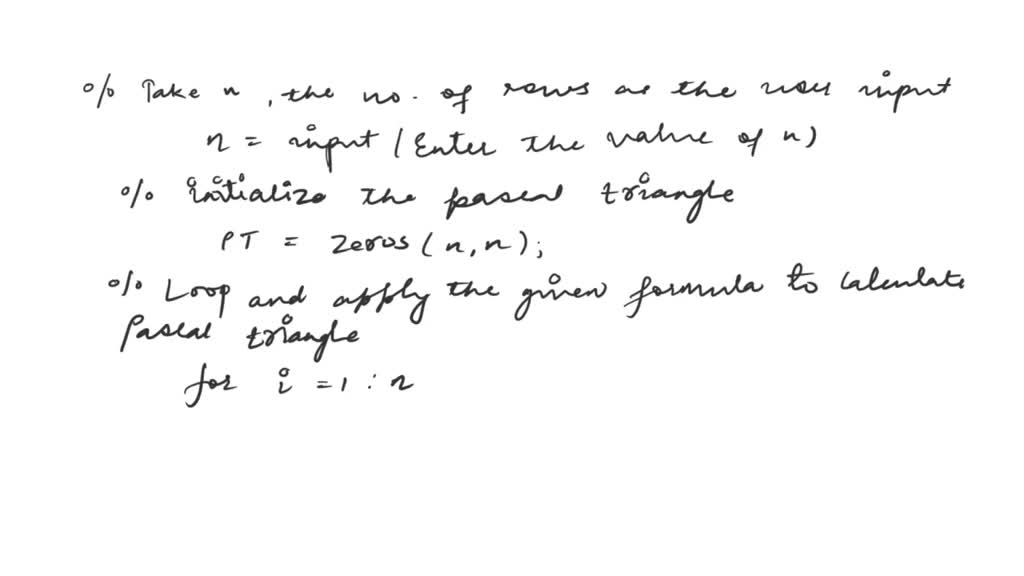 % Take n, the no. of rows as the user input
n = input (Enter the value of n)
% initialize the pascal triangle
PT = zeros(n,n);
% Loop and apply the given formula to calculate
Pascal triangle
for i = 1 : n